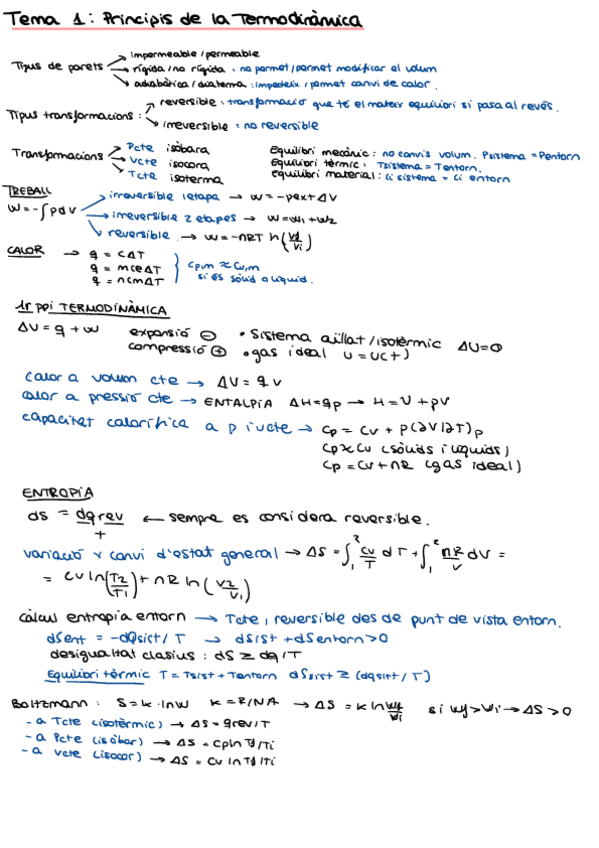 Tema 1: Principis de la Termodinàmica
Tipus de parets
impermeable / permeable
rígida / no rígida : no permet / permet modificar el volum
adiabàtica / diaterma : impedeix / permet canvi de calor.
Tipus transformacions :
reversible : transformació que té el mateix equilibri si passa al revés.
irreversible : no reversible
Transformacions
Pcte isòbara
Vcte isocora
Tcte isoterma
Equilibri mecànic : no canvis volum. Psistema = Pentorn
Equilibri tèrmic : Tsistema = Tentorn.
Equilibri material : Ci sistema = Ci entorn
TREBALL
W = -∫pdV
irreversible 1 etapa → W = -pext ΔV
irreversible 2 etapes → W = W1 + W2
reversible → W = -nRT ln(Vf/Vi)
CALOR → q = CΔT
q = mceΔT
q = ncmΔT
Cp,m ≈ Cv,m
si és sòlid o líquid.
1r ppi TERMODINÀMICA
ΔU = q + W
expansió ⊖
compressió ⊕
• Sistema aïllat / isotèrmic ΔU = 0
• gas ideal U = U(t)
Calor a volum cte → ΔU = qv
Calor a pressió cte → ENTALPIA ΔH = qp → H = U + pV
Capacitat calorífica a p i vcte → Cp = Cv + P(∂V/∂T)p
Cp ≈ Cv (sòlids i líquids)
Cp = Cv + nR (gas ideal)
ENTROPIA
dS = dqrev / T ← sempre es considera reversible.
Variació x canvi d'estat general → ΔS = ∫₁² Cv/T dT + ∫₁² nR/V dV =
= Cv ln(T2/T1) + nR ln(V2/V1)
càlcul entropia entorn → Tcte, reversible des de punt de vista entorn.
dSent = -dQsist / T → dSsist + dSentorn > 0
desigualtat clasius : dS ≥ dq/T
Equilibri tèrmic T = Tsist + Tentorn dSsist ≥ (dqsist / T)
Boltzmann : S = k · lnW K = R/NA → ΔS = k ln Wf/Wi si Wf > Wi → ΔS > 0
- a Tcte (isotèrmic) → ΔS = qrev/T
- a Pcte (isòbar) → ΔS = Cp ln Tf/Ti
- a Vcte (isocor) → ΔS = Cv ln Tf/Ti